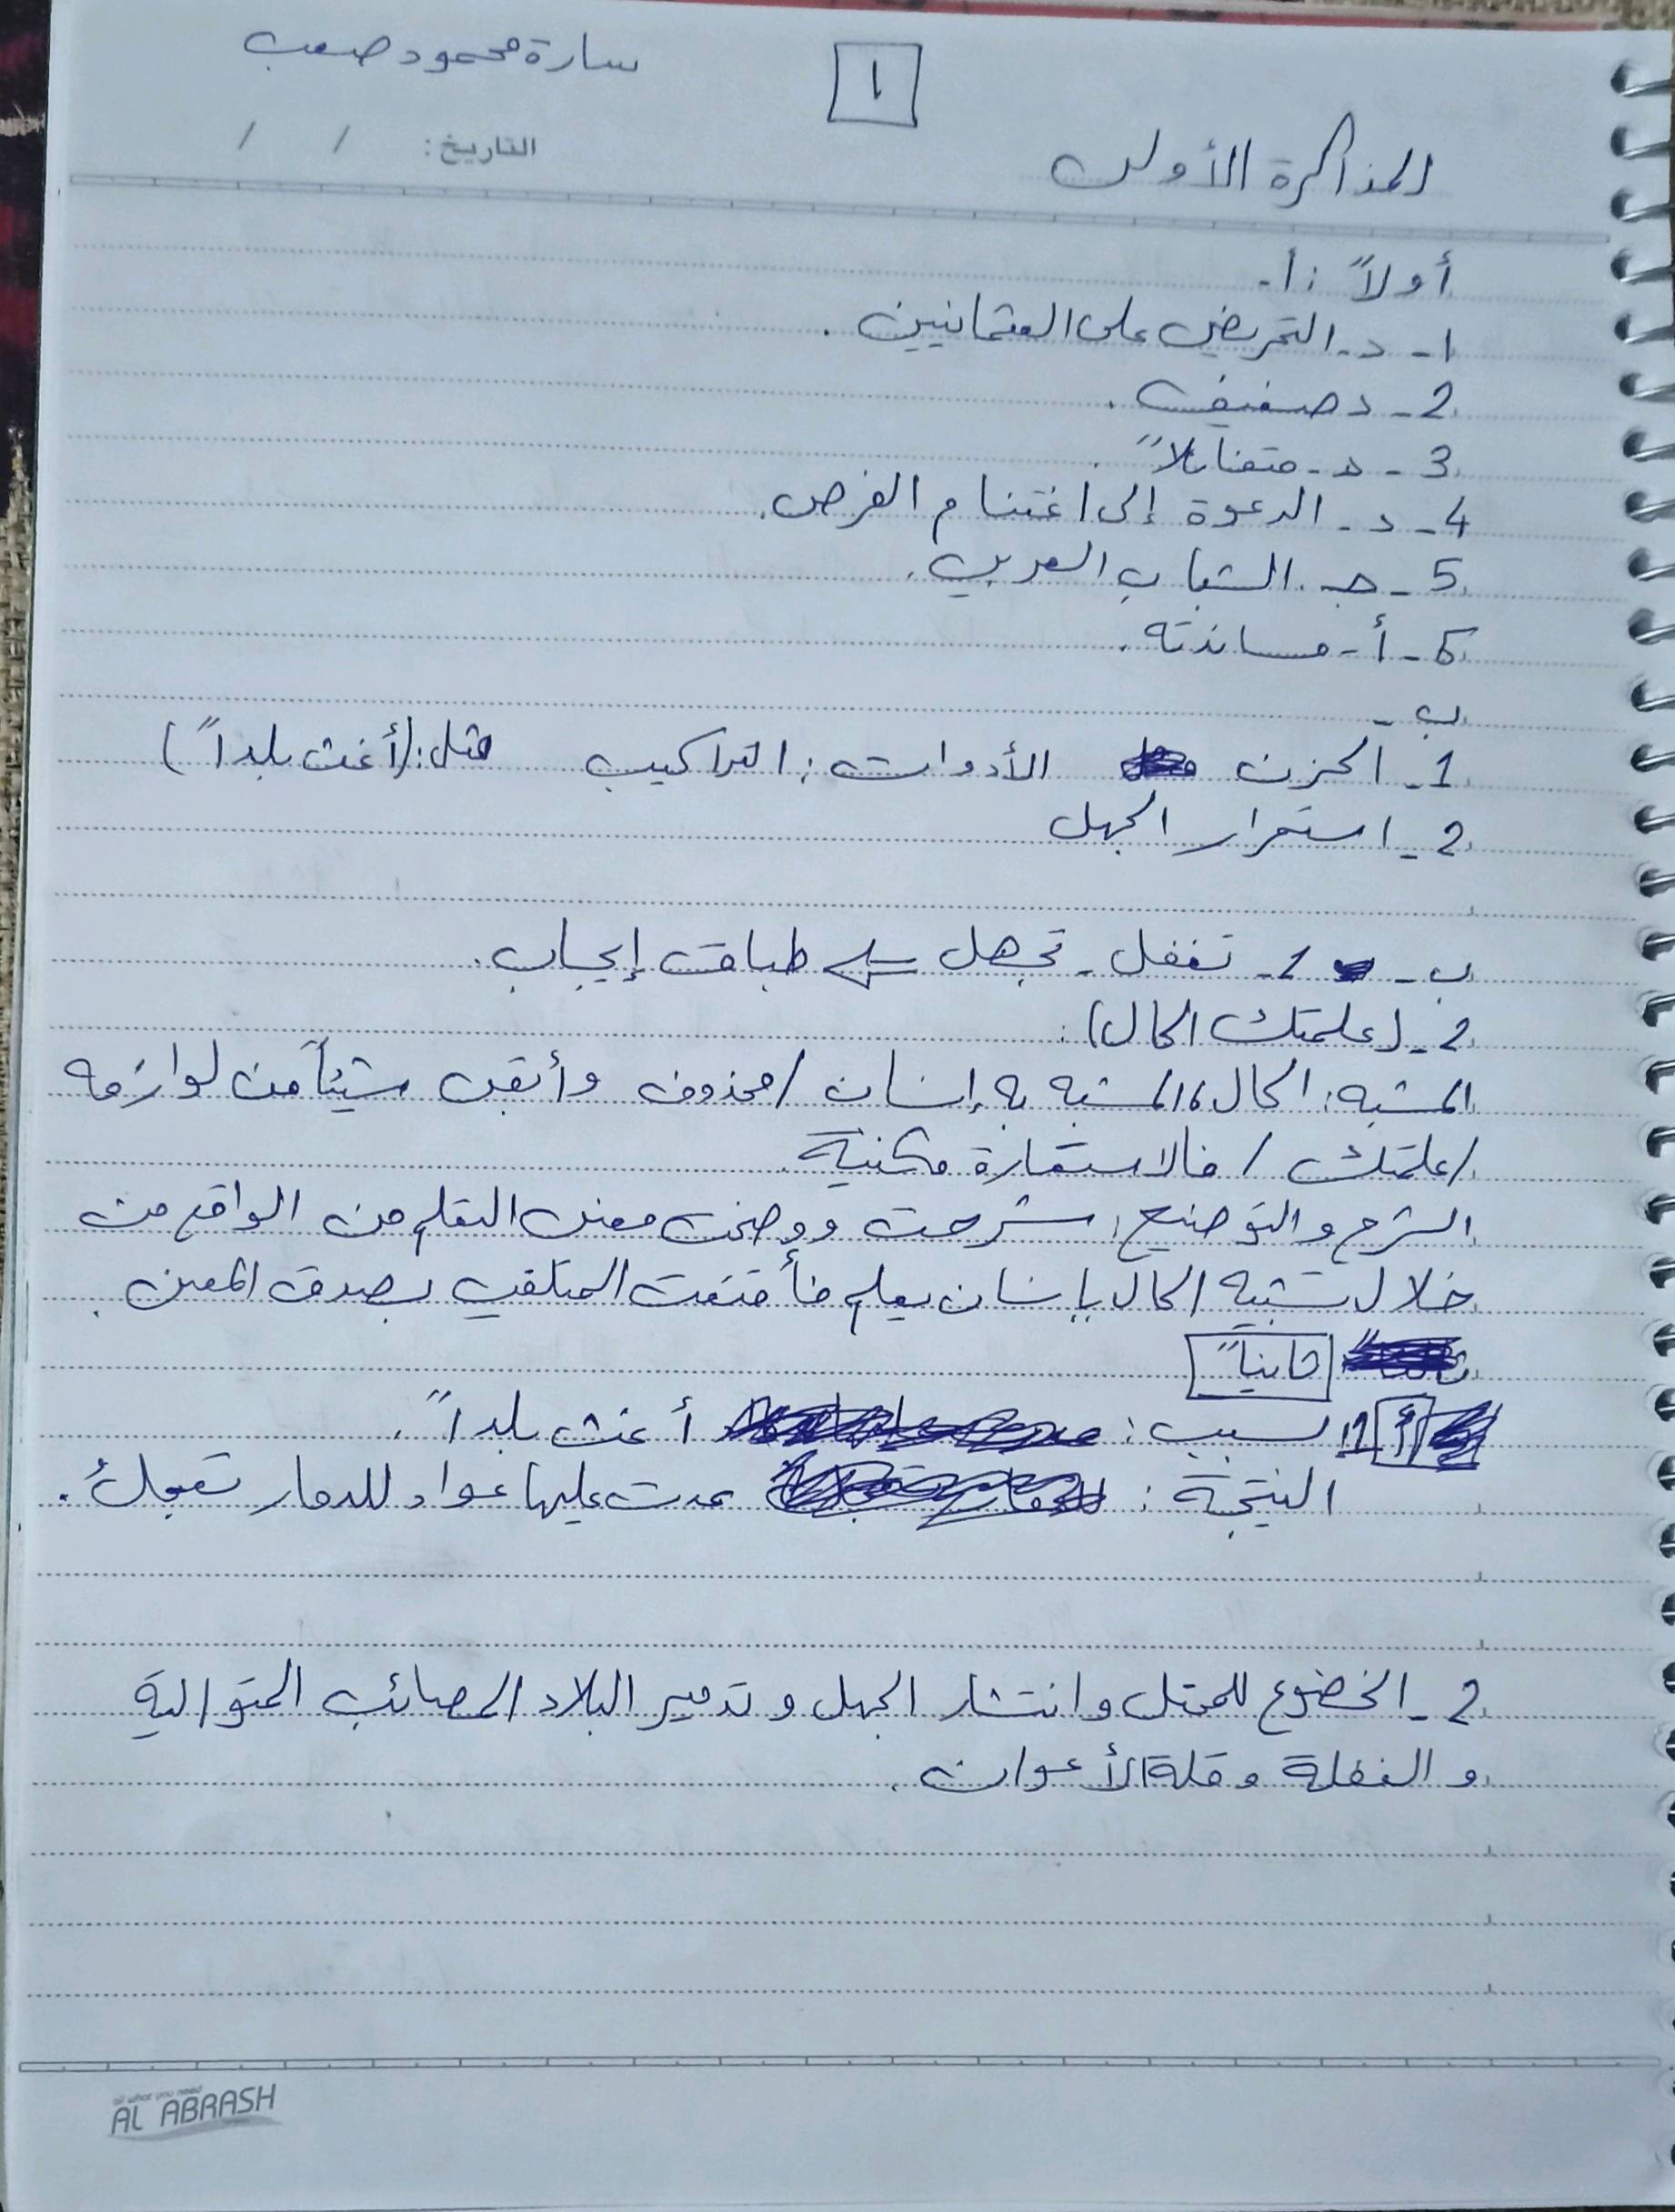 سارة محمود صعب
١
التاريخ: / /
المذاكرة الأولى
أولاً: أ-
1- د- التحريض على العثمانيين.
2- د صفيف.
3- د- متفائلاً.
4- د- الدعوة إلى اغتنام الفرص.
5- جـ. الشباب العربي.
6- أ- مساندته.
ب-
1- الحزن الأدوات: التراكيب مثل: (أغث بلداً)
2- استمرار الجهل
ب- 1- تغفل - تجهل طباق إيجاب.
2- (علمتك الحال):
المشبه: الحال، المشبه به إنسان /محذوف وأبقى شيئاً من لوازمه
/علمتك/ فالاستعارة مكنية.
الشرح والتوضيح: شرحت ووضحت معنى التعلم من الواقع من
خلال تشبيه الحال بإنسان يعلم فأقنعت المتلقي بصدق المعنى.
ثانياً
أ 1 السبب: أغث بلداً.
النتيجة: عدت عليها عواد للدمار تعجلُ.
2- الخضوع للمحتل وانتشار الجهل و تدمير البلاد المصائب المتوالية
و الغفلة و قلة الأعوان.
all what you need
AL ABRASH